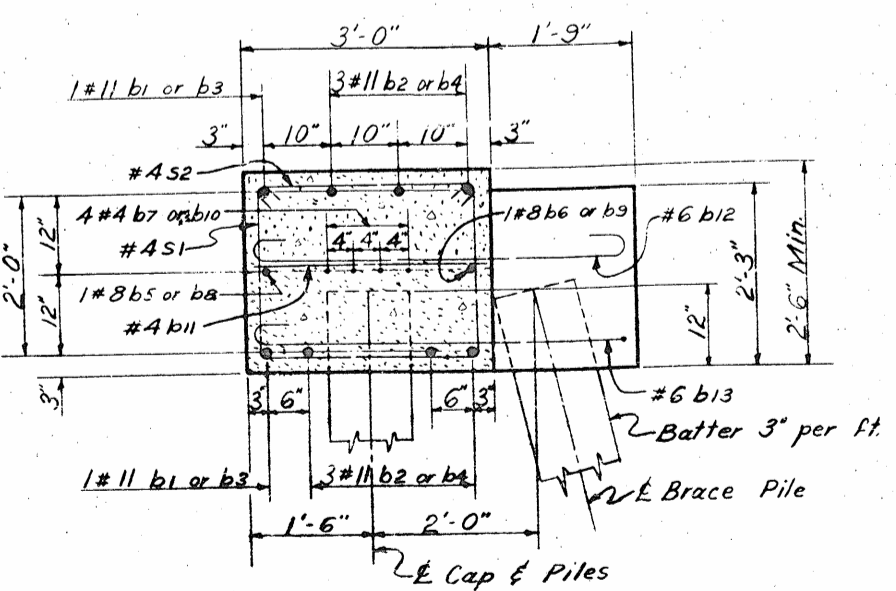 3'-0"
1'-9"
1#11 b1 or b3
3#11 b2 or b4
3"
10"
10"
10"
3"
#4 S2
4 #4 b7 or b10
1#8 b6 or b9
#6 b12
#4 S1
4"
4"
4"
12"
2'-0"
12"
1#8 b5 or b8
#4 b11
12"
2'-3"
2'-6" Min.
3"
3"
6"
6"
3"
#6 b13
Batter 3" per ft.
1#11 b1 or b3
3#11 b2 or b4
℄ Brace Pile
1'-6"
2'-0"
℄ Cap & Piles